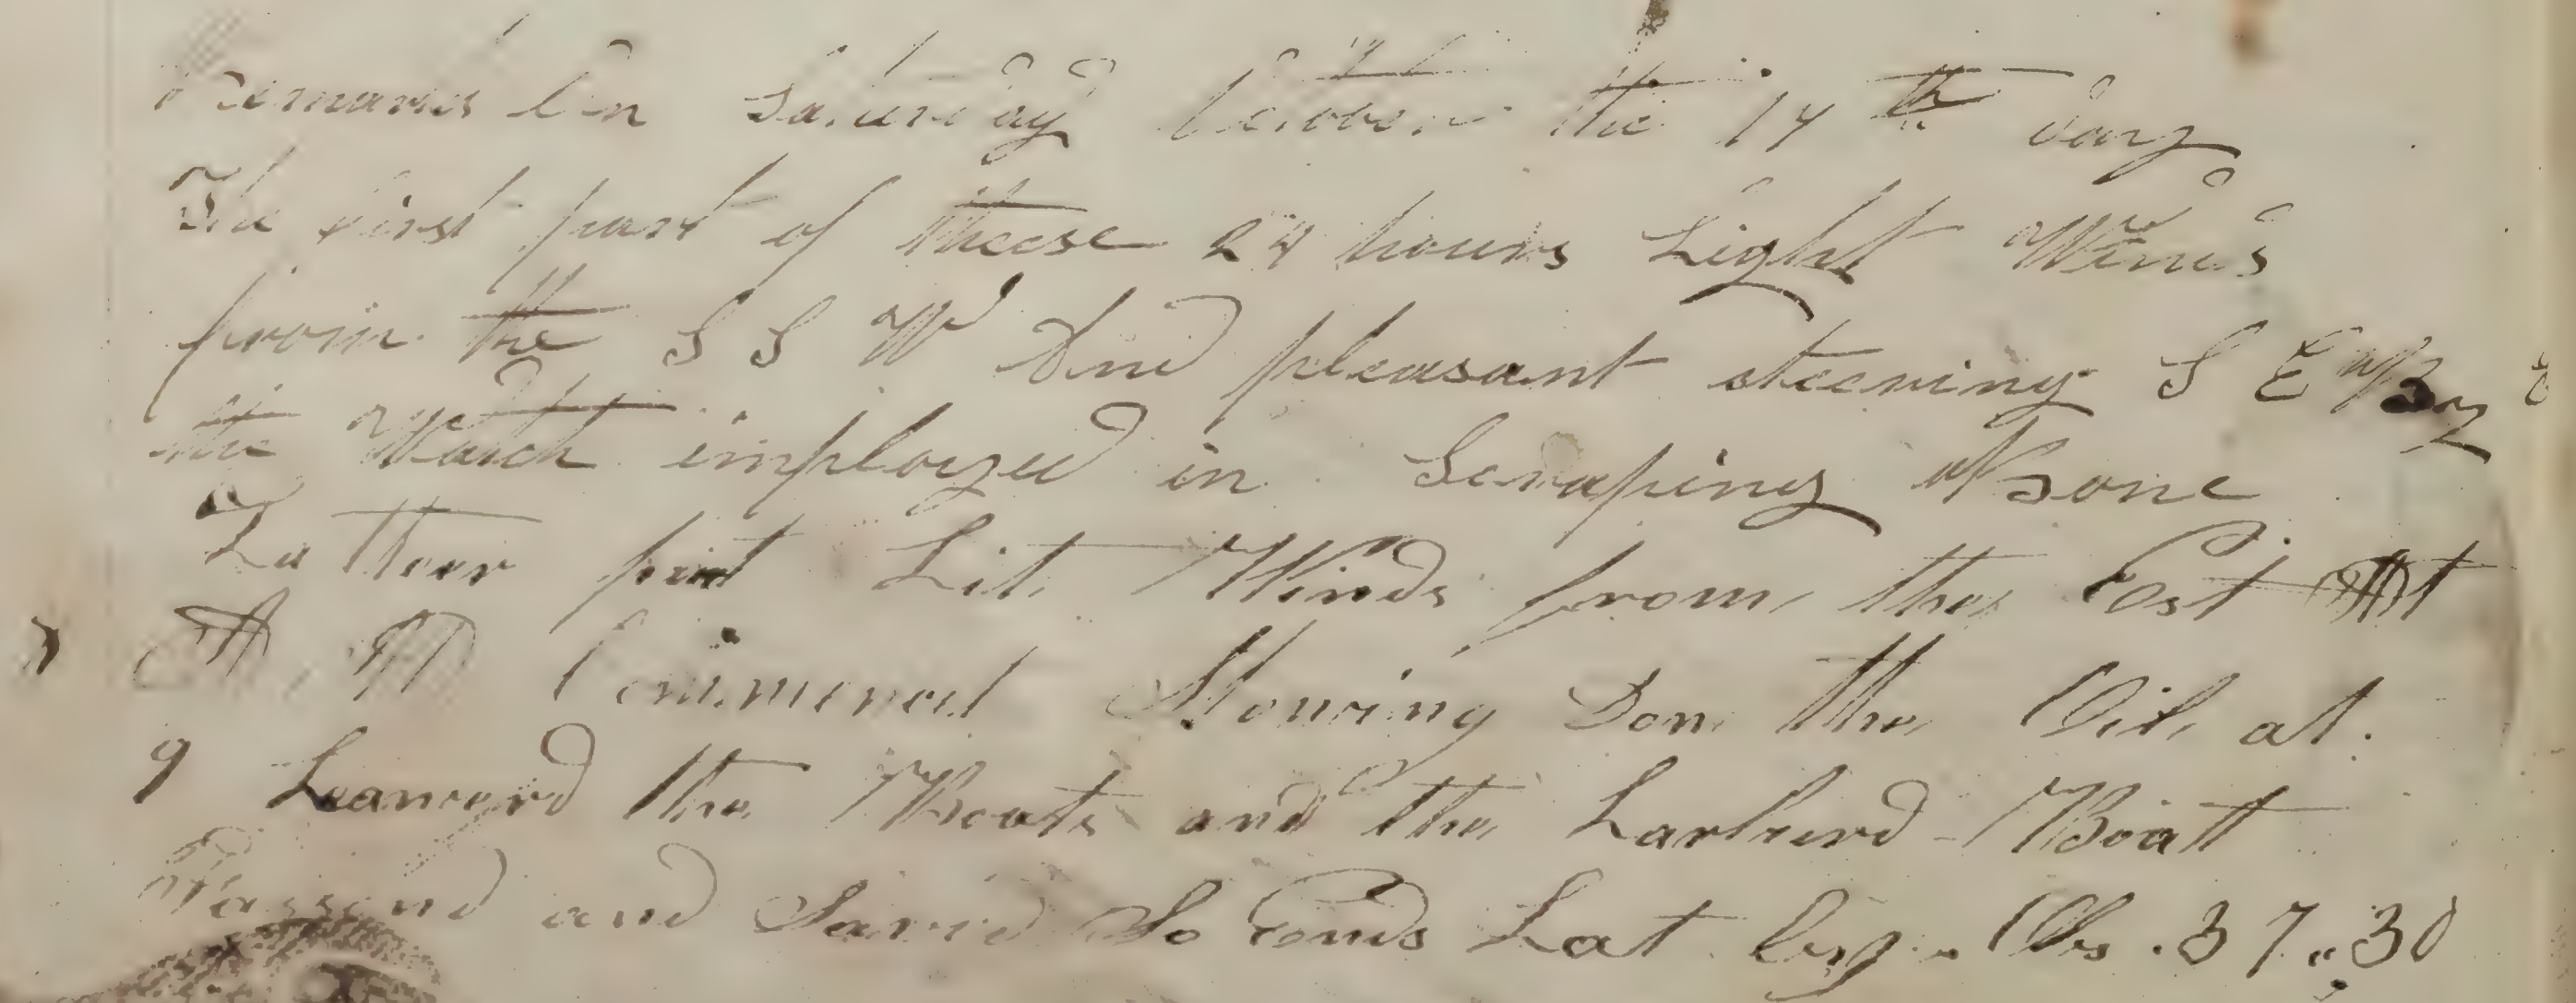 Remarks On Saturday October the 14th day
The first part of theese 24 hours Light Winds
from the S S W And pleasant steering S E By S
the Watch imployed in Scraping Bone
Latteer part Lit Winds from the Est At
A M Commencd Stowing Don the Oil at
9 Loawerd the Boats and the Larburd Boatt
Fassend and Savid So Ends Lat by Obs 37,,30